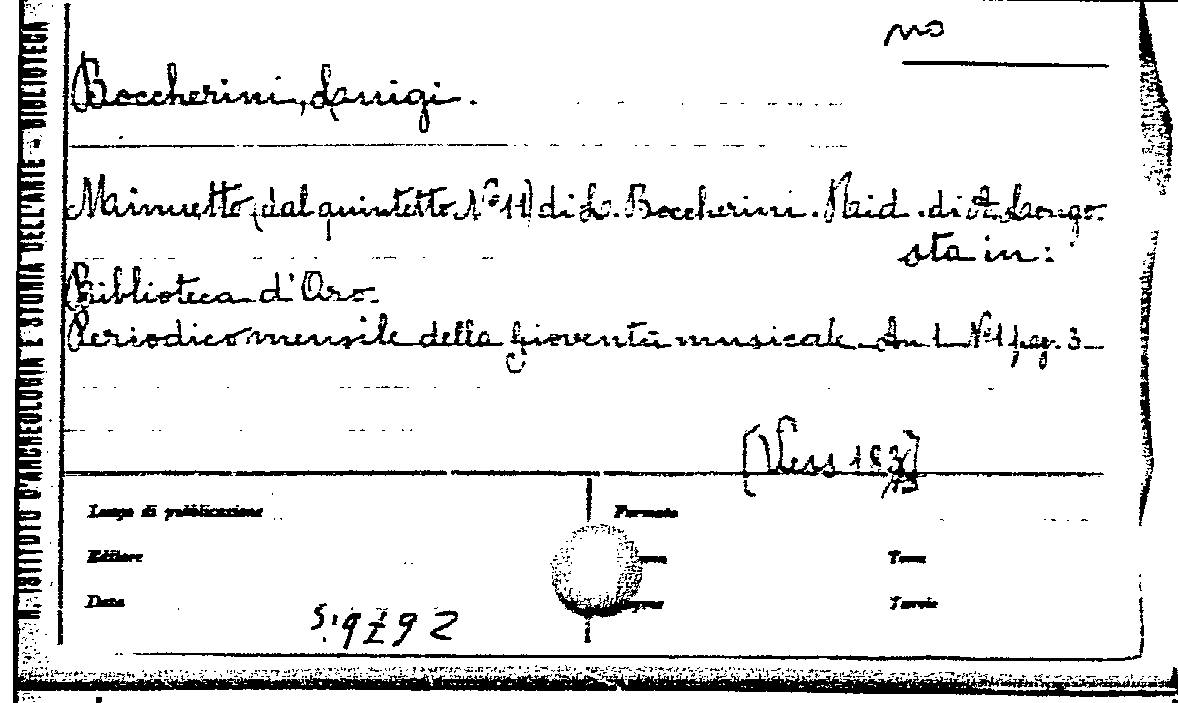 no
Boccherini, Luigi.
Minuetto (dal quintetto Nº 11) di L. Boccherini. Rid. di A. Longo.
sta in:
Biblioteca d'Oro.
Periodico mensile della gioventù musicale. An 1 Nº 1 pag. 3
R. ISTITUTO D'ARCHEOLOGIA E STORIA DELL'ARTE - BIBLIOTECA
Luogo di pubblicazione
Formato
Editore
Tomo
Data
Tavole